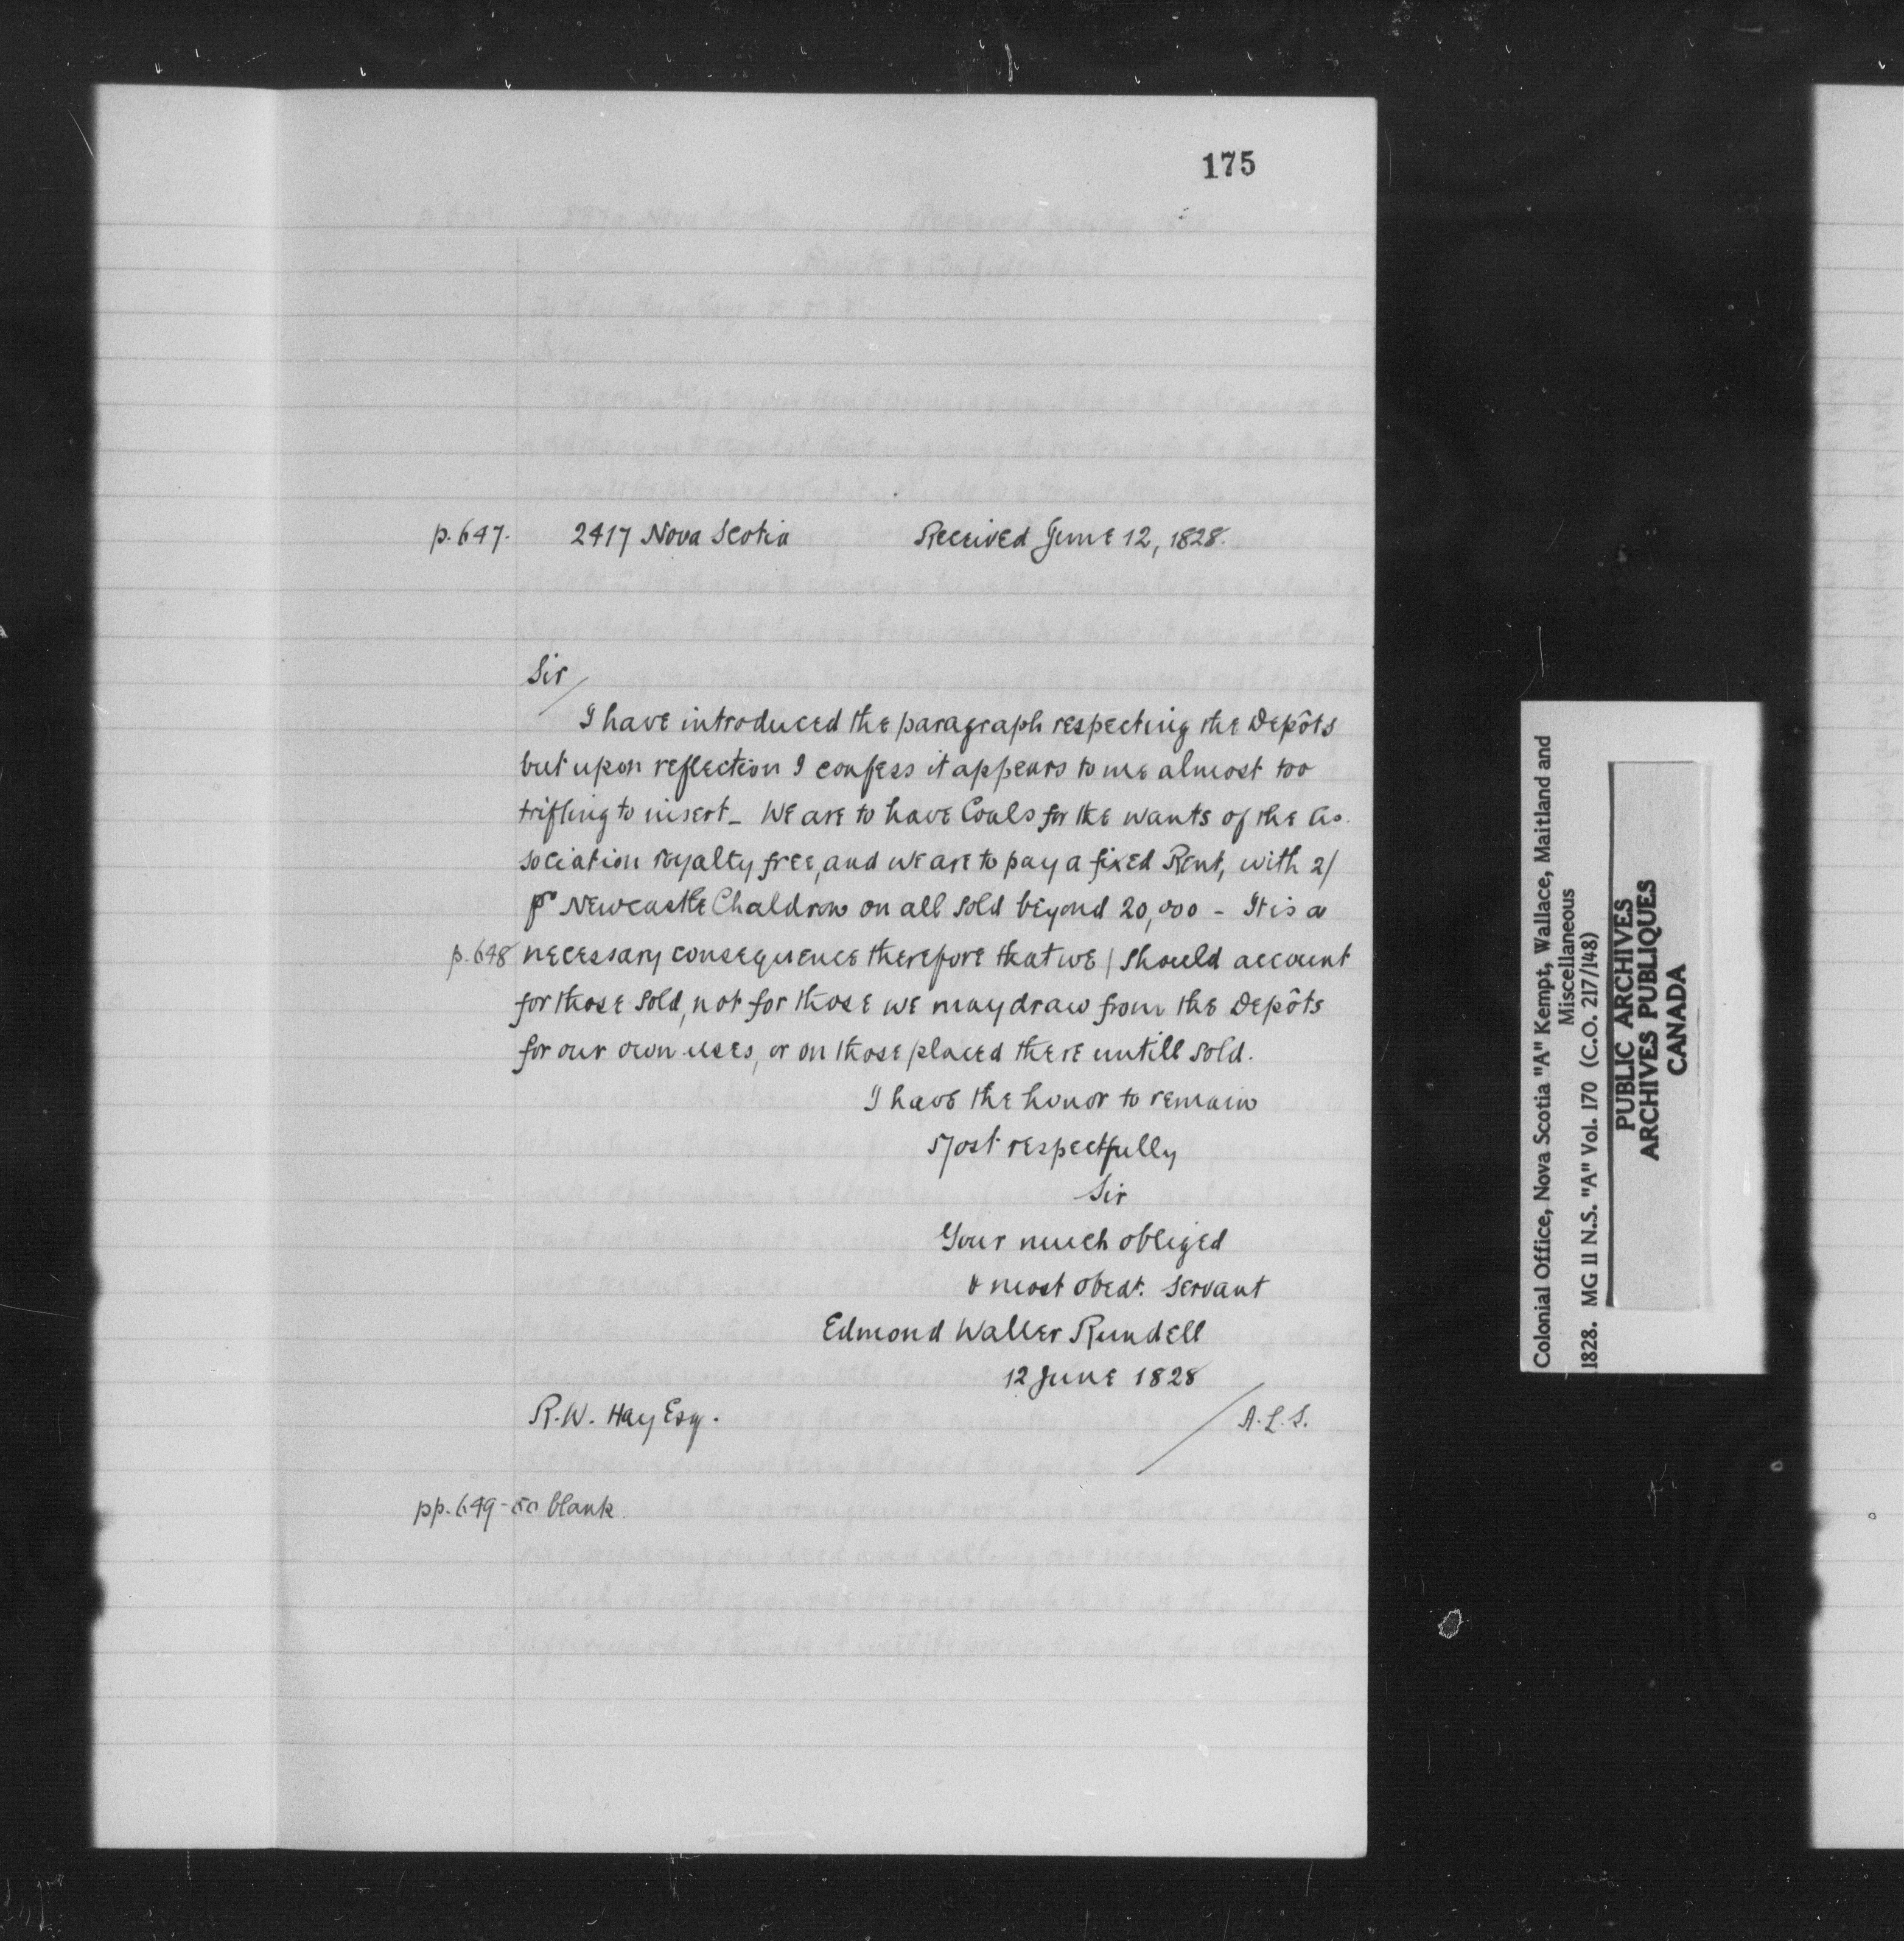 175
p. 647. 2417 Nova Scotia Received June 12, 1828.
Sir
I have introduced the paragraph respecting the Depôts
but upon reflection I confess it appears to me almost too
trifling to insert_ We are to have Coals for the wants of the As-
sociation royalty free, and we are to pay a fixed Rent, with 2/
pr Newcastle Chaldron on all sold beyond 20,000 - It is a
p. 648 necessary consequence therefore that we / should account
for those sold, not for those we may draw from the Depôts
for our own uses, or on those placed there untill sold.
I have the honor to remain
Most respectfully
Sir
Your much obliged
& most obedt. servant
Edmond Waller Rundell
12 June 1828
R.W. Hay Esq. A.L.S.
pp. 649-50 blank.
Colonial Office, Nova Scotia "A" Kempt, Wallace, Maitland and
Miscellaneous
1828. MG 11 N.S. "A" Vol. 170 (C.O. 217/148)
PUBLIC ARCHIVES
ARCHIVES PUBLIQUES
CANADA